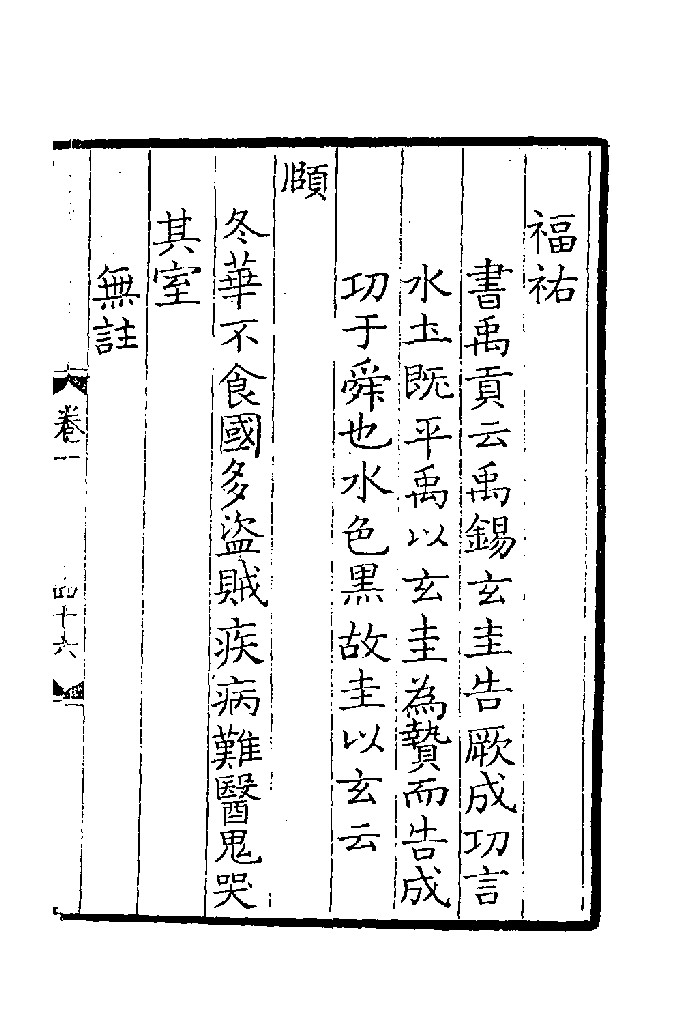 福祐
書禹貢云禹錫玄圭告厥成功言
水土既平禹以玄圭為贄而告成
功于舜也水色黒故圭以玄云
頤
冬華不食國多盜賊疾病難醫鬼哭
其室
無註
卷一
四十六